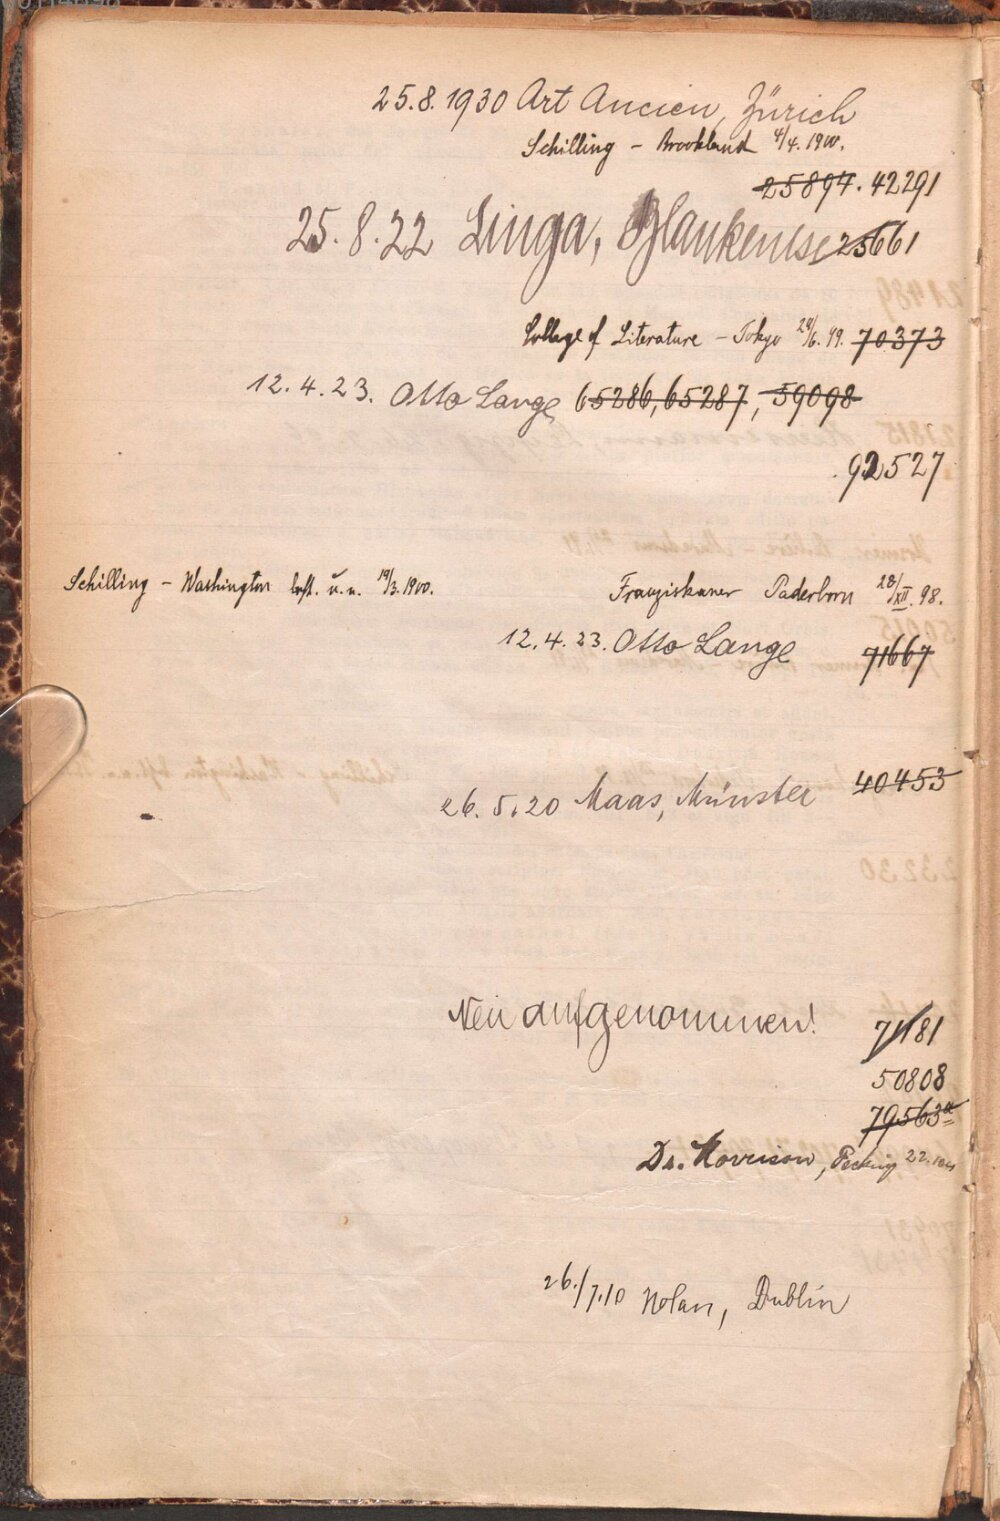 25.8.1930 Art Ancien, Zürich
Schilling – Brookland 4/4. 1900.
25897. 42291
25.8.22 Linga, Blankenese 25661
College of Literature – Tokyo 6. 99. 70373
12.4.23. Otto Lange 65286, 65287, 59098
92527
Schilling – Washington 19/3. 1900.
Franziskaner Paderborn 28/XII. 98.
12.4.23. Otto Lange 71667
40453
26.5.20 Maas, Münster
Neu aufgenommen! 71181
50808
79563a
Dr. Morrison, Peking 22.
26./7.10 Nolan, Dublin